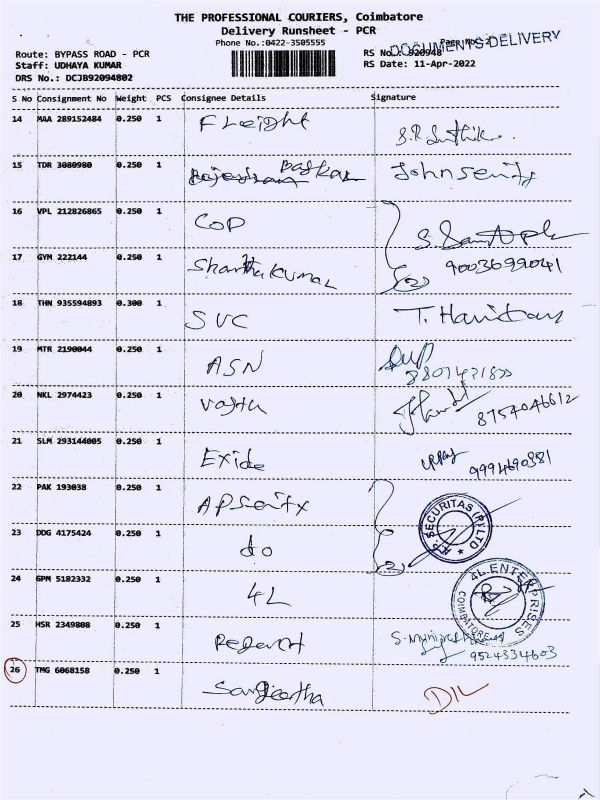 THE PROFESSIONAL COURIERS, Coimbatore
Delivery Runsheet - PCR
Phone No.:0422-3505555
DOCUMENTS DELIVERY
Route: BYPASS ROAD - PCR
RS No.: 920948
Staff: UDHAYA KUMAR
RS Date: 11-Apr-2022
DRS No.: DCJB92094802
S No Consignment No Weight PCS Consignee Details Signature
14 MAA 289152484 0.250 1 Fleight
15 TDR 3080980 0.250 1 Baskar Johnserity
16 VPL 212826865 0.250 1 COP
17 GYM 222144 0.250 1 Shanthakumar (2) 9003699041
18 THN 935594893 0.300 1 SVC T. Haridas
19 MTR 2190044 0.250 1 ASN
20 NKL 2974423 0.250 1 Vasthu 8754046612
21 SLM 293144005 0.250 1 Exide 9994690381
22 PAK 193038 0.250 1 APSerity
23 DDG 4175424 0.250 1 do (2)
A.P. SECURITAS (P) LTD
24 GPM 5182332 0.250 1 4L
4L ENTERPRISES COIMBATORE
25 HSR 2349808 0.250 1 9524334603
26 TMG 6068158 0.250 1 Sangeetha DIL